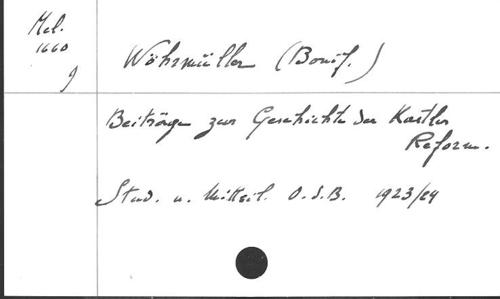 Mel.
1660
g
Wöhrmüller (Bonif.)
Beiträge zur Geschichte der Kastler
Reform.
Stud. u. Mitteil. O.S.B. 1923/24